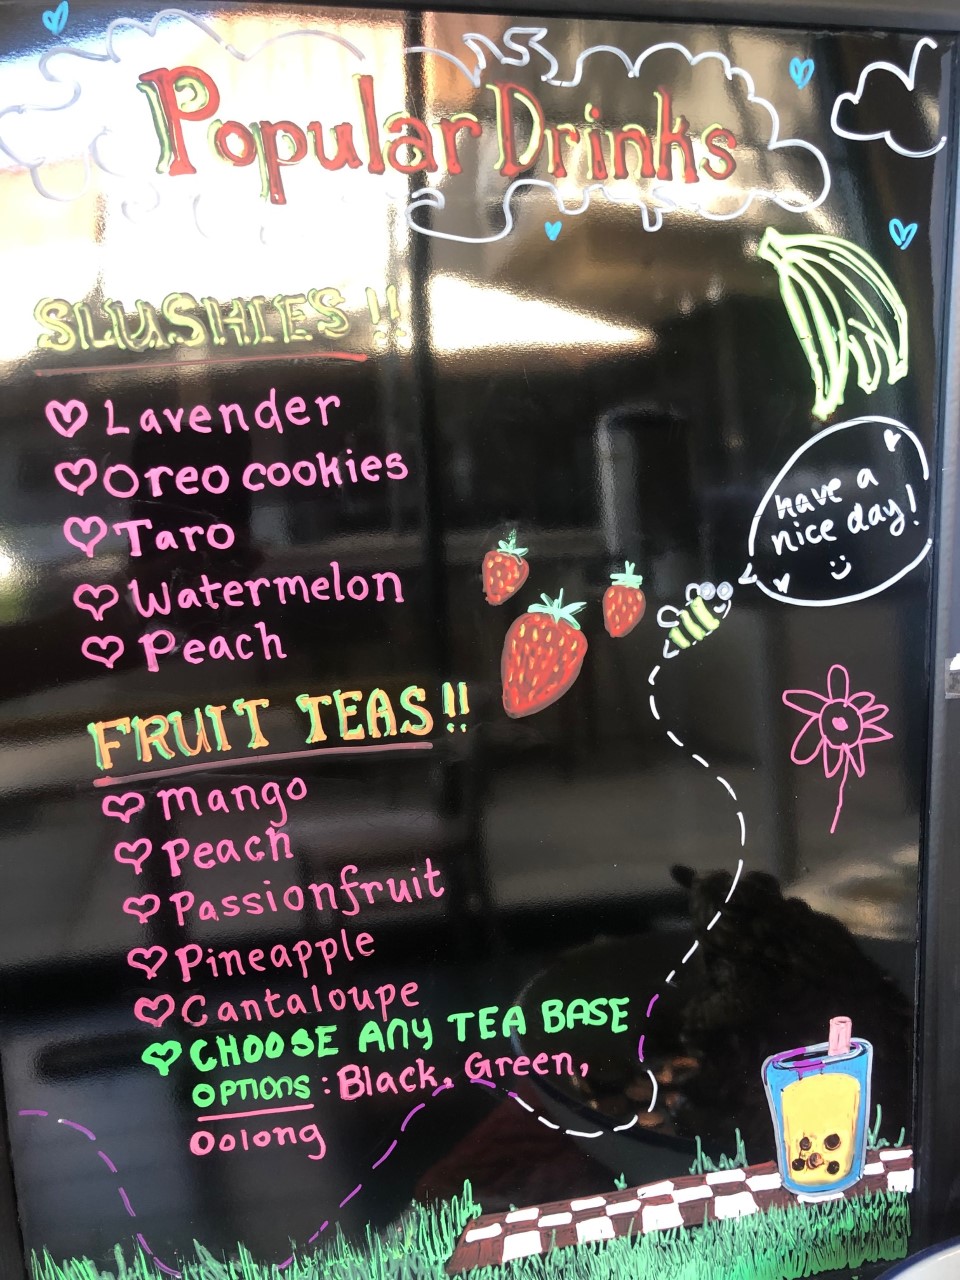 Popular Drinks
SLUSHIES !!
Lavender
Oreo cookies
Taro
Watermelon
Peach
have a
nice day!
FRUIT TEAS!!
Mango
Peach
Passionfruit
Pineapple
Cantaloupe
CHOOSE ANY TEA BASE
OPTIONS : Black, Green,
Oolong